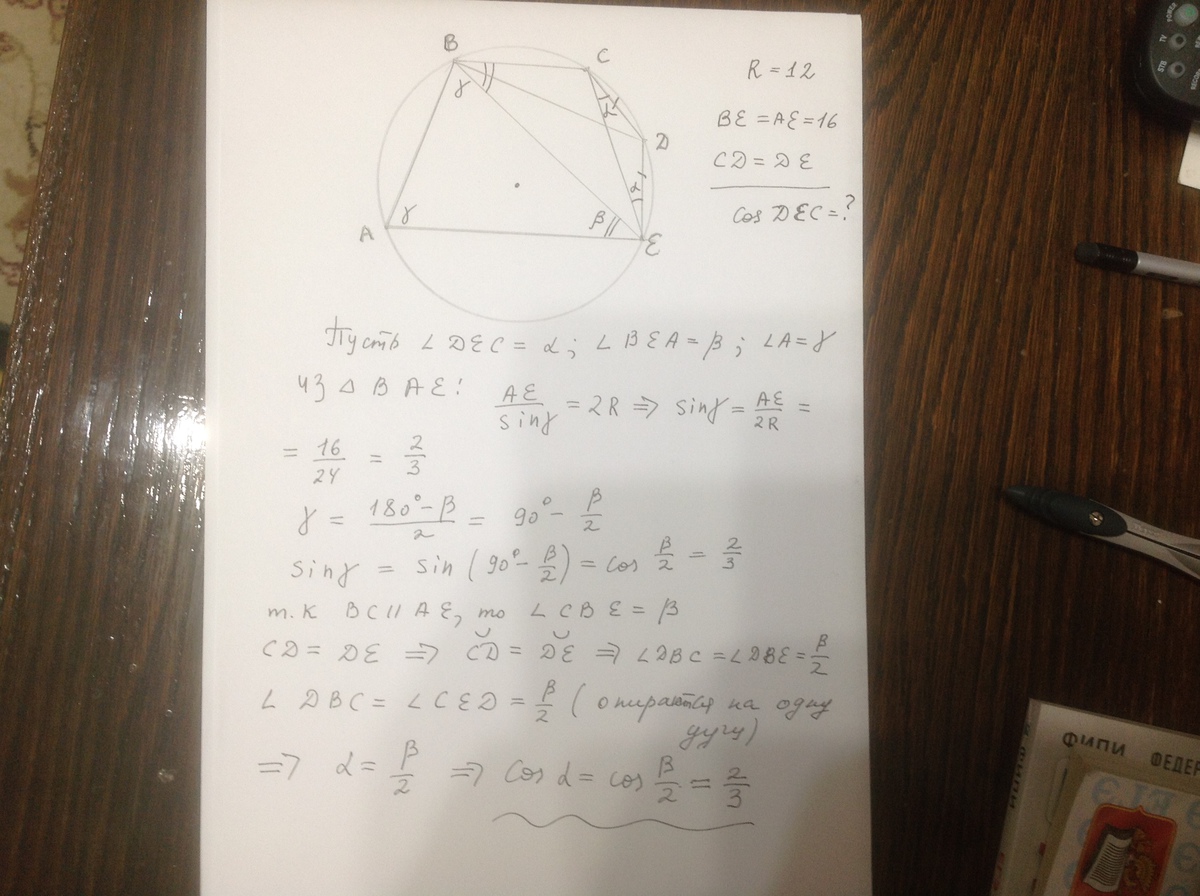 B
C
D
A
E
γ
γ
β
α
α
R = 12
BE = AE = 16
CD = DE
cos DEC = ?
Пусть ∠DEC = α; ∠BEA = β; ∠A = γ
из △ BAE: AE/sinγ = 2R ⇒ sinγ = AE/2R =
= 16/24 = 2/3
γ = (180° − β)/2 = 90° − β/2
sinγ = sin (90° − β/2) = cos β/2 = 2/3
т.к BC ∥ AE, то ∠CBE = β
CD = DE ⇒ ◡CD = ◡DE ⇒ ∠DBC = ∠DBE = β/2
∠DBC = ∠CED = β/2 (опираются на одну
дугу)
⇒ α = β/2 ⇒ cos α = cos β/2 = 2/3
ФИПИ ФЕДЕР
ЕГЭ
POWER
TV
STB